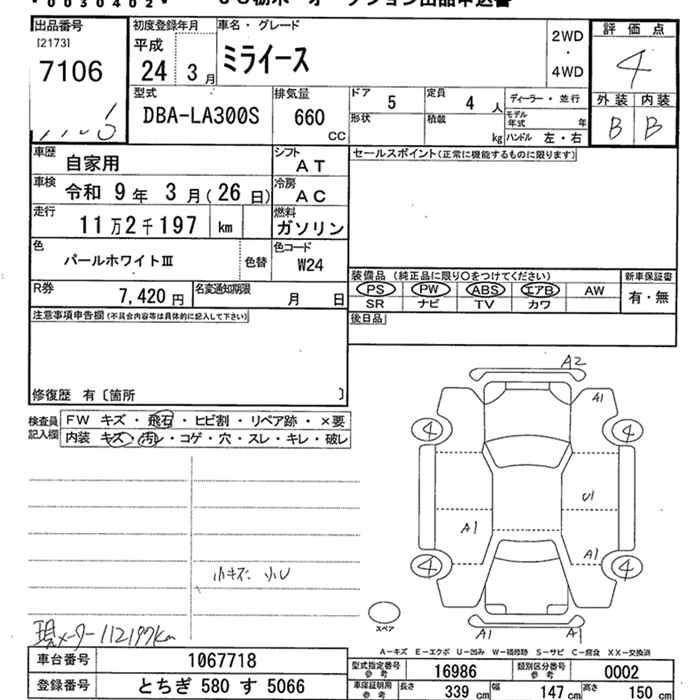 * 0 0 3 0 4 0 2 *
出品申込書
出品番号
[2173]
7106
初度登録年月
平成
24 3 月
車名・グレード
ミライース
2WD
・
4WD
評価点
4
外装 内装
B B
型式
DBA-LA300S
排気量
660
CC
ドア
5
定員
4 人
ディーラー・並行
形状
積載
kg
モデル年式
年
ハンドル 左・右
車歴
自家用
シフト
AT
セールスポイント(正常に機能するものに限ります)
車検
令和 9 年 3 月(26 日)
冷房
AC
走行
11 万 2 千 197 km
燃料
ガソリン
色
パールホワイトⅢ
色替
色コード
W24
R券
7,420 円
名変通知期限
月 日
装備品 (純正品に限り○をつけてください)
新車保証書
PS PW ABS エアB AW
有・無
SR ナビ TV カワ
注意事項申告欄(不具合内容等は具体的に記入して下さい)
後日品
修復歴 有〔箇所 〕
検査員記入欄
FW キズ・飛石・ヒビ割・リペア跡・×要
内装 キズ・汚レ・コゲ・穴・スレ・キレ・破レ
A2
A1
4 4
U1
A1
A1
4 4
小キズ. 小U
スペア
A1 A1
現メーター112197km
A-キズ E-エクボ U-凹み W-補修跡 S-サビ C-腐食 XX-交換済
車台番号 1067718
登録番号 とちぎ 580 す 5066
型式指定番号参考 16986
類別区分番号参考 0002
車庫証明用参考 長さ 339 cm 幅 147 cm 高さ 150 cm